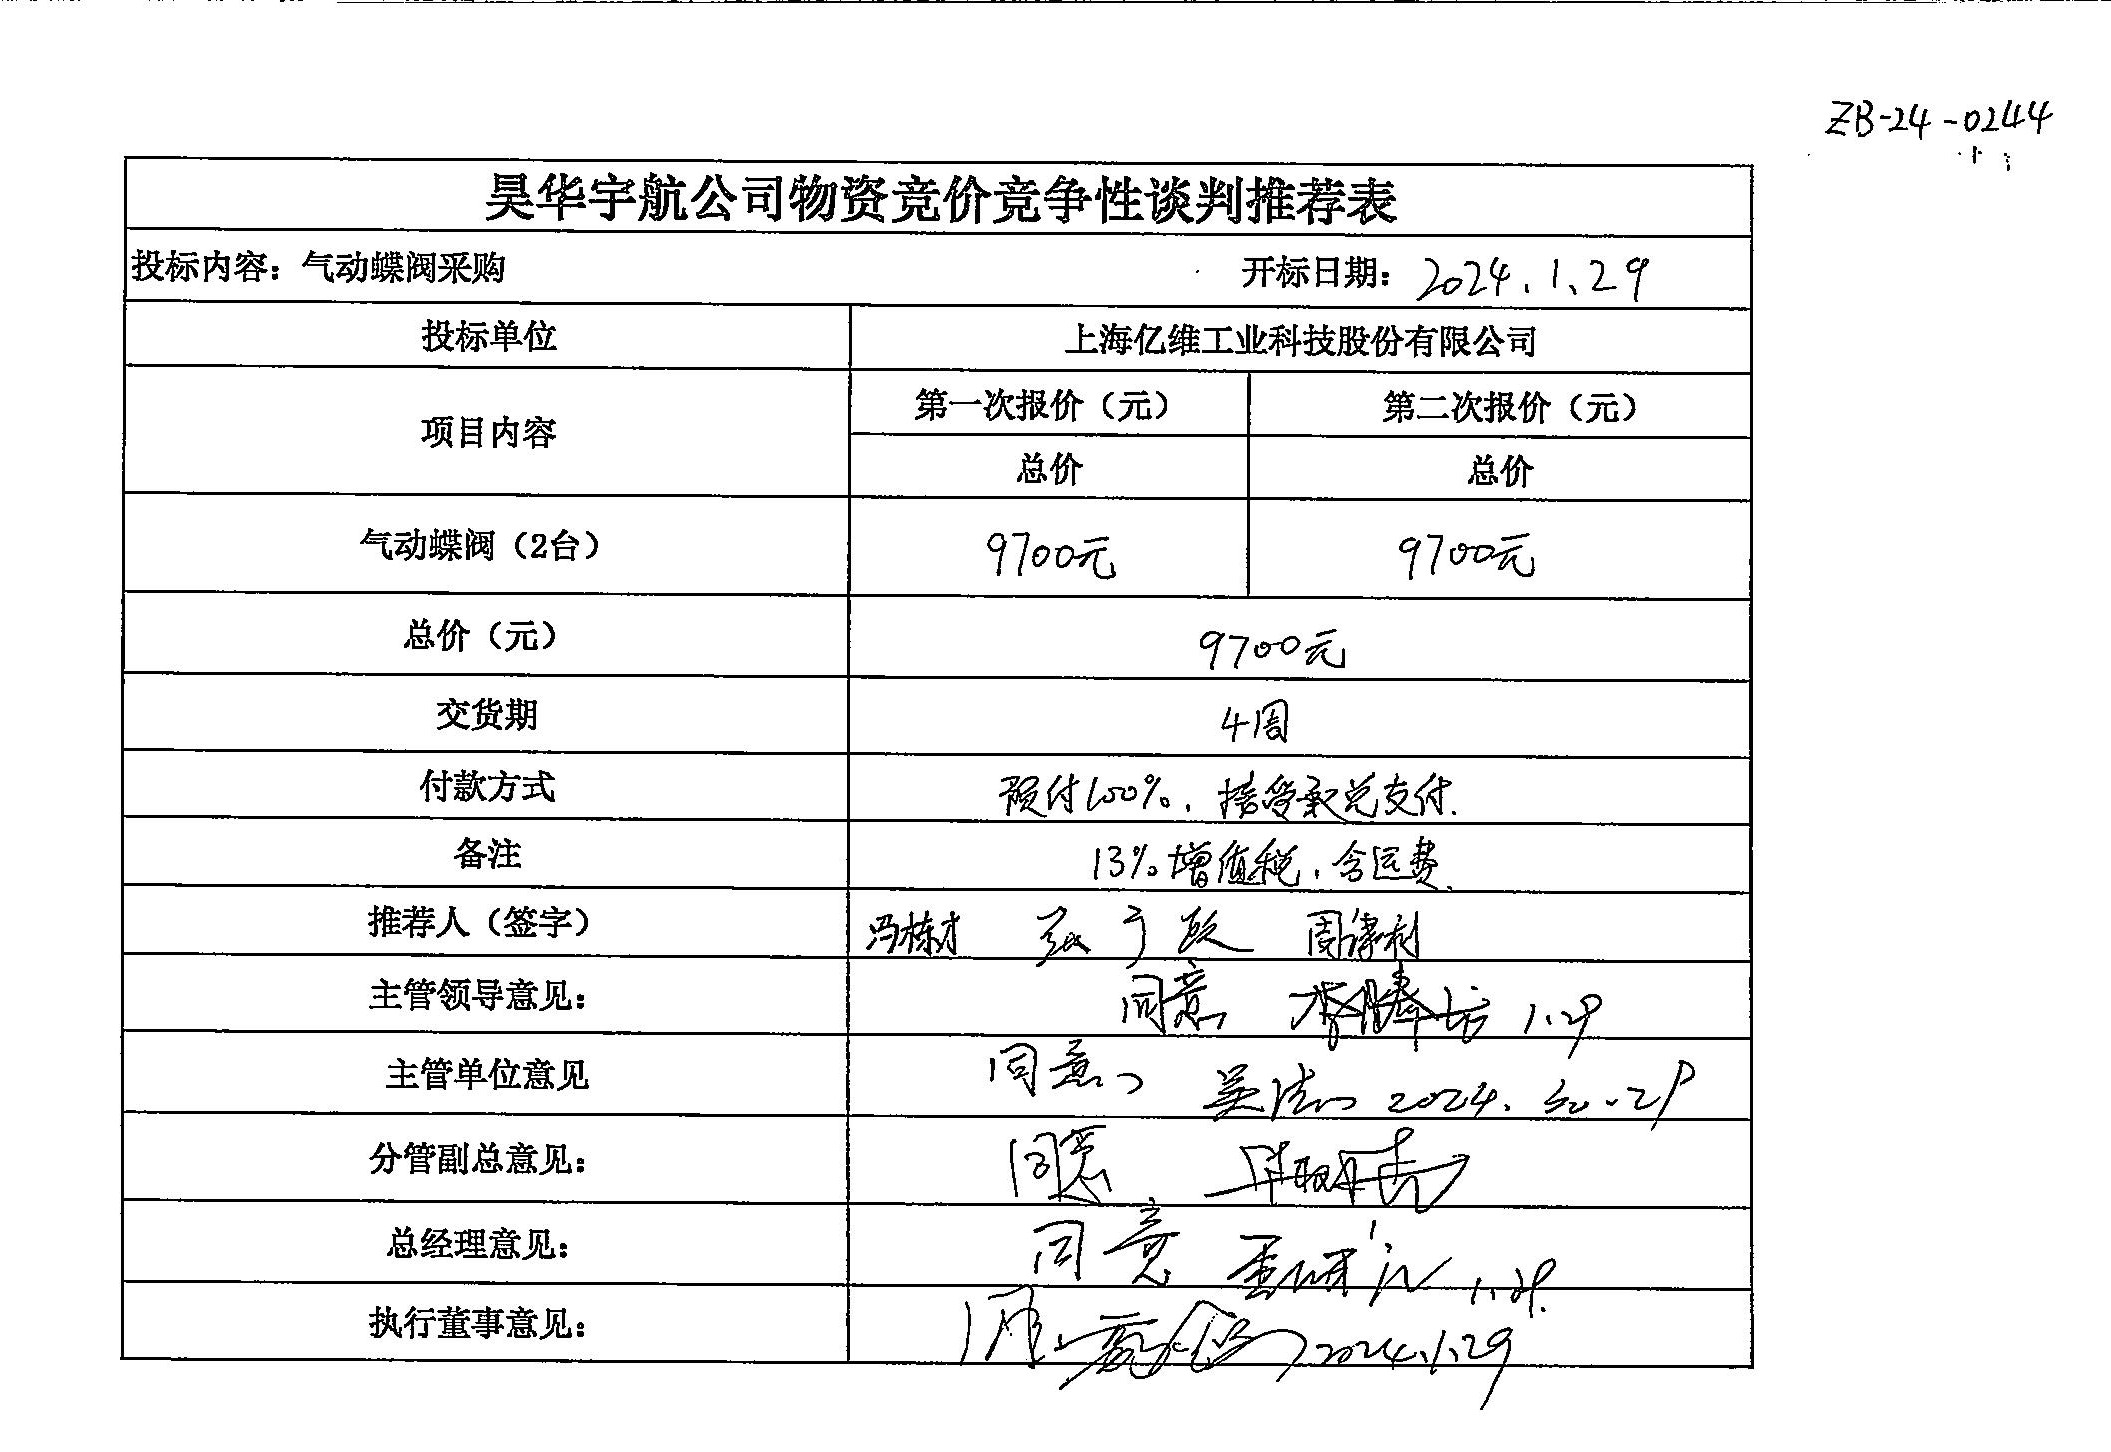 ZB-24-0244
昊华宇航公司物资竞价竞争性谈判推荐表
投标内容：气动蝶阀采购 开标日期：2024.1.29
投标单位 上海亿维工业科技股份有限公司
项目内容 第一次报价（元） 第二次报价（元）
总价 总价
气动蝶阀（2台） 9700元 9700元
总价（元） 9700元
交货期 4周
付款方式 预付100%，接受承兑支付.
备注 13%增值税，含运费.
推荐人（签字） 冯栋才
主管领导意见： 同意 1.29
主管单位意见 同意 2024.
分管副总意见： 同意
总经理意见： 同意 1.29.
执行董事意见： 2024.1.29